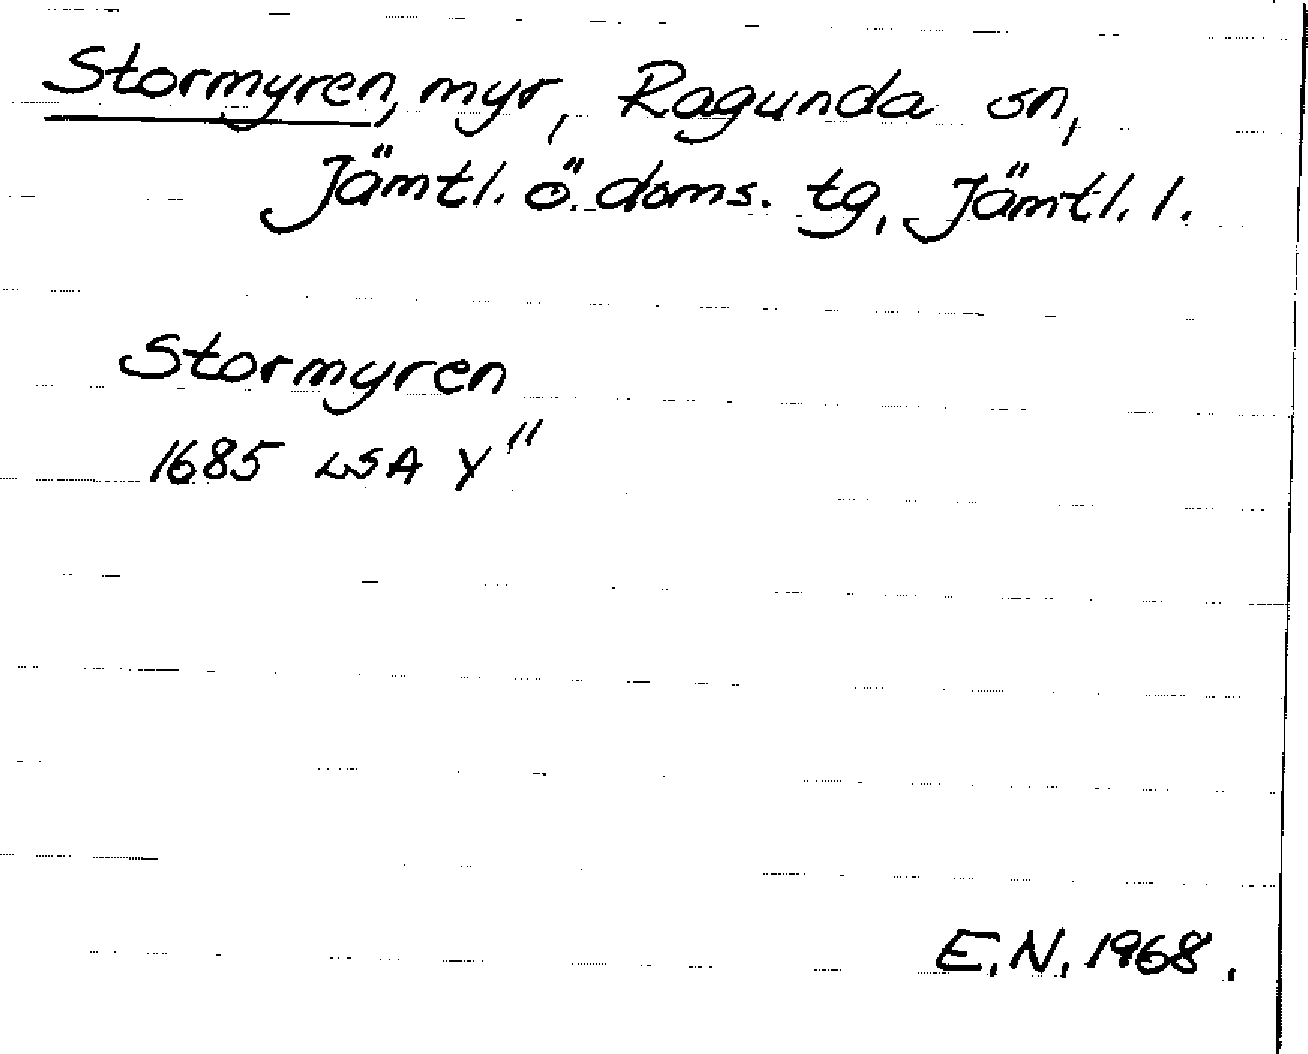 Stormyren, myr, Ragunda sn,
Jämtl. ö. doms. tg, Jämtl. l.
Stormyren
1685 LSA Y"
E.N. 1968.